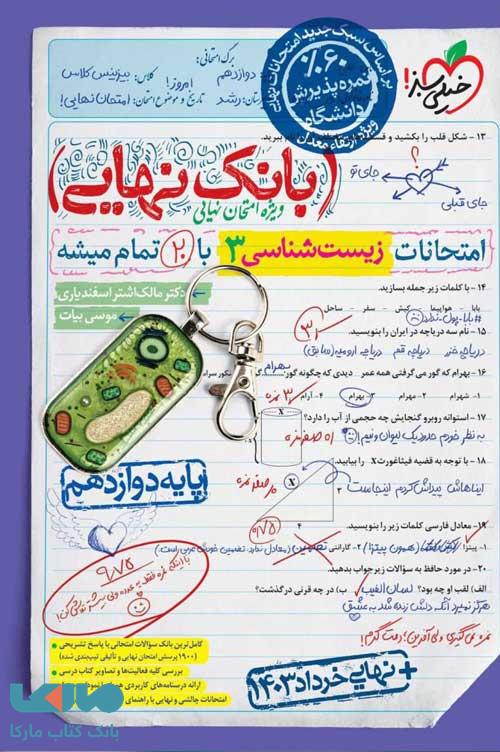 خیلی سبز!
بر اساس سبک جدید امتحانات نهایی
٪۶۰
نمره پذیرش
دانشگاه
ویژه ارتقاء معدل
برگ امتحانی:
دوازدهم
کلاس: بیزینس کلاس
امروز!
تاریخ و موضوع امتحان: امتحان نهایی!
رشد
۱۳- شکل قلب را بکشید و
ببرید.
جای تو
جای قبلی
(بانک نهایی)
ویژه امتحان نهایی
امتحانات زیست‌شناسی ۳ با ۲۰ تمام میشه
دکتر مالک‌اشتر اسفندیاری
موسی بیات
۱۴- با کلمات زیر جمله بسازید.
بابا - هواپیما - کیش - سفر - ساحل
#بابا_پول_ندارد
۱۵- نام سه دریاچه در ایران را بنویسید.
دریاچه خزر دریاچه قم دریاچه ارومیه (سابق)
۱۶- بهرام که گور می‌گرفتی همه عمر دیدی که چگونه گور بهرام
۱- شهرام ۲- بهرام ۳- بهرام ۴- آرام
۱۷- استوانه روبرو گنجایش چه حجمی از آب را دارد؟
به نظر خودم حدود یک لیوان و نیم!
X
۱۸- با توجه به قضیه فیثاغورث X را بیابید.
ایناهاش پیداش کردم اینجاست
X
۳
۴
۰/۷۵
۱۹- معادل فارسی کلمات زیر را بنویسید.
۱- پیتزا
(همون پیتزا) ۲- گارانتی
۲۰- در مورد حافظ به سؤالات زیر جواب بدهید.
الف) لقب او چه بود؟ لسان الغیب ب) در چه قرنی درگذشت؟
هرگز نمیرد آنکه دلش زنده شد به عشق
پایه دوازدهم
۹/۷۵
نمره نمی‌گیری ولی آفرین! دمت گرم!
کامل‌ترین بانک سؤالات امتحانی با پاسخ تشریحی
(۱۹۰۰ پرسش امتحان نهایی و تألیفی تیپ‌بندی شده)
بررسی کلیه فعالیت‌ها و تصاویر کتاب درسی
ارائه درسنامه‌های کاربردی
امتحانات چالشی و نهایی با راهنمای
+ نهایی خرداد ۱۴۰۳
مارکا
بانک کتاب مارکا